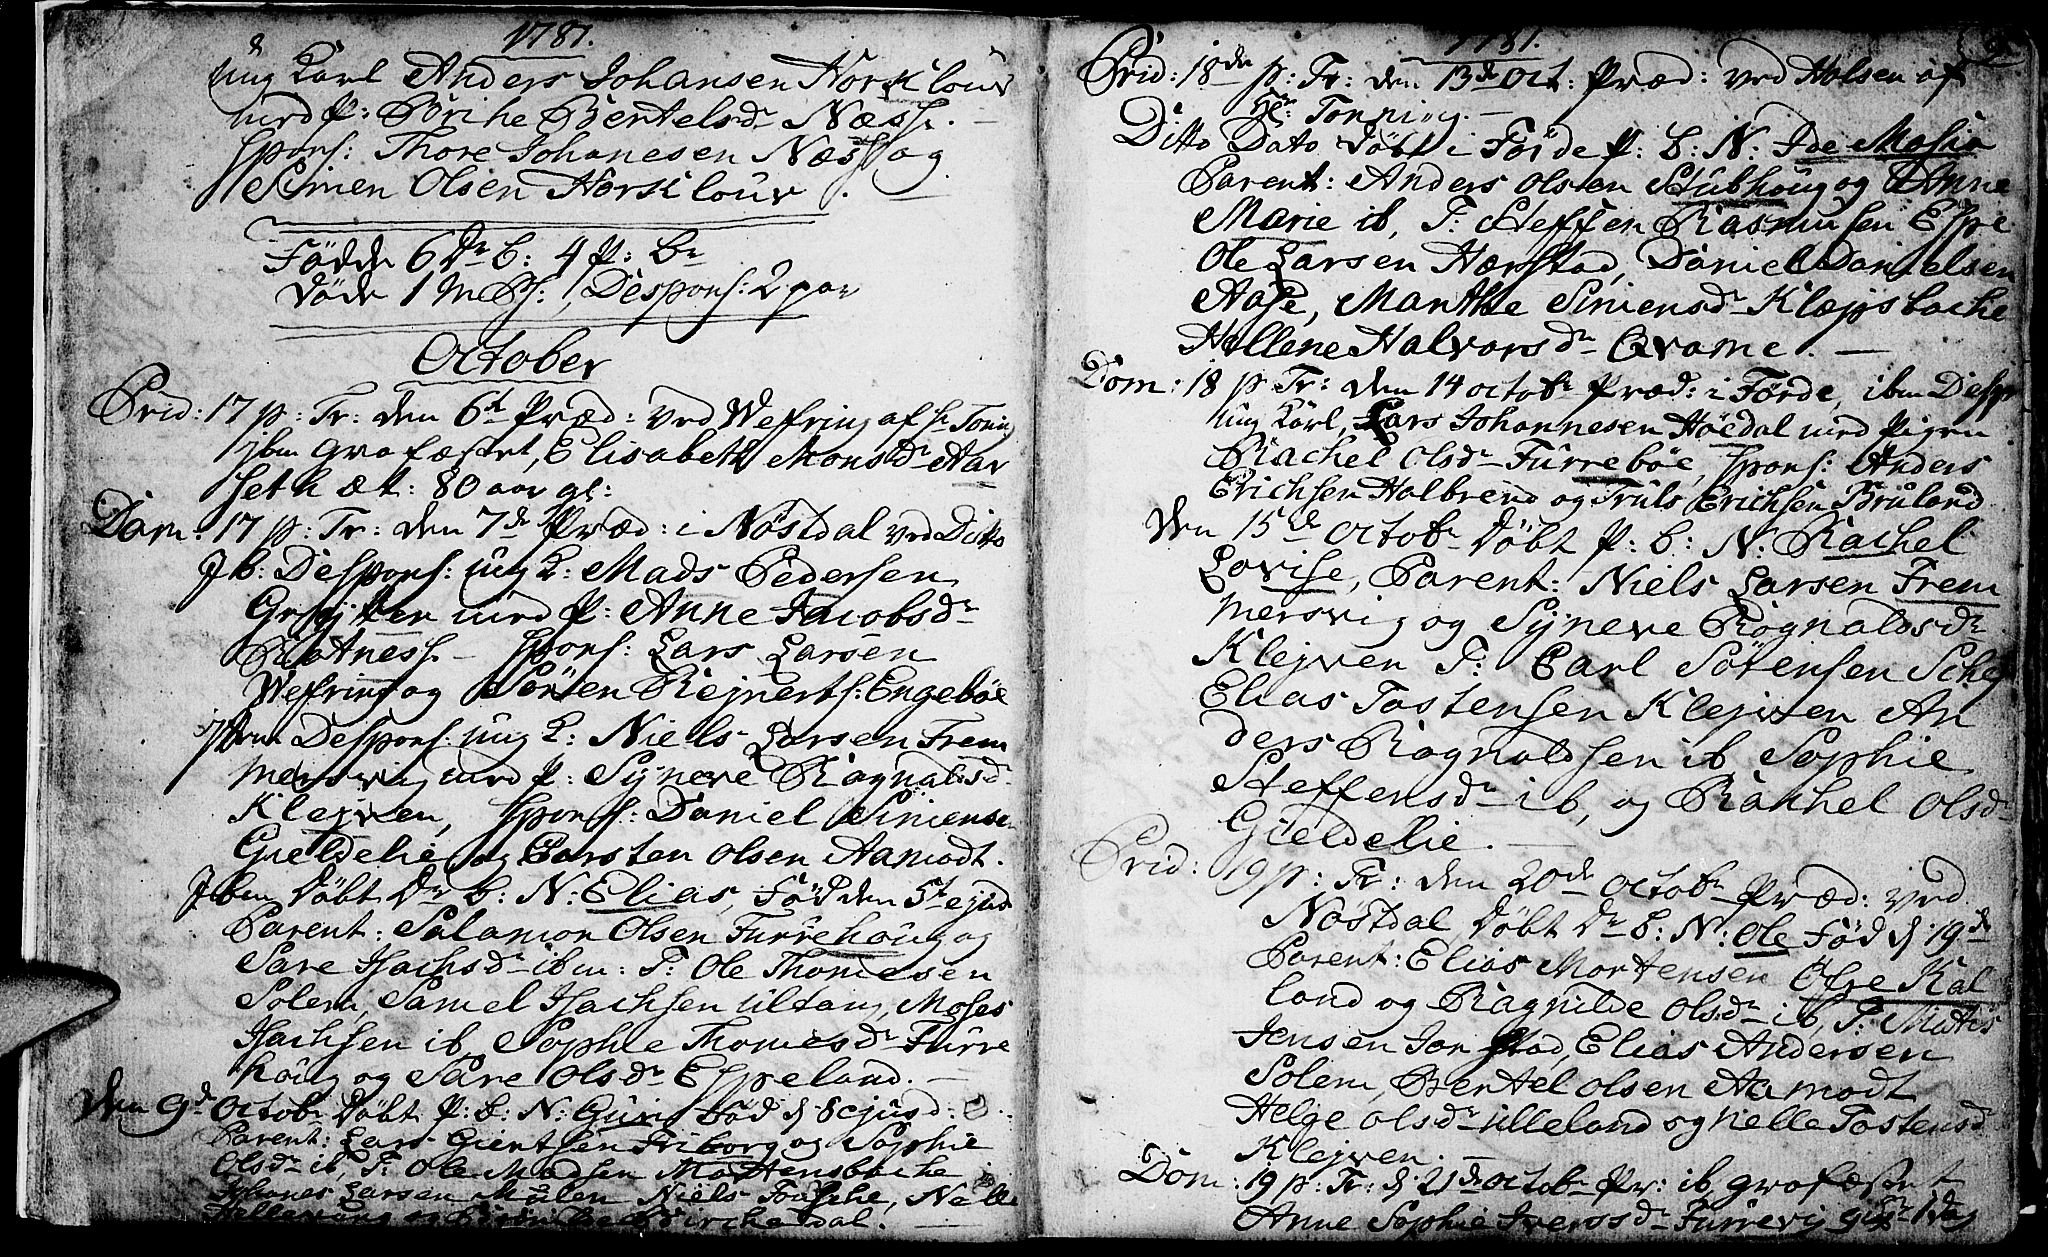 1781.
ung Karl Anders Johansen Norsk louv
med P: Börthe Bertelsdr Næss. —
spons: Thore Johanesen Næss og
Simen Olsen Horsklouv.
Födde 6 Dr b: 4 P: Br
döde 1 Mss: Despons: 2 par
October
Prid: 17 p: Tr: den 6te Præd: ved Wefring af Hr Toning
ibm grafæstet, Elisabeth Monsdr Aar
seth æt: 80 aar gl:
Dom: 17 p: Tr: den 7de Præd: i Nöstdal ved Ditto
Ib: Despons: ung K: Mads Pedersen
Grytten med P: Anne Jacobsdr
Ratness. — spons: Lars Larsen
Wefring og Sören Rejnerts: Engeböe
Ibm Despons: ung K: Niels Larsen Frem
mersvig med P: Syneve Ragnaldsdr
Klejven, spons: Daniel Simense
Gieldelie og Carsten Olsen Aamodt.
Ibm döbt Dr b: N: Elias, Föd den 5te ejusd
Parent: Salamon Olsen Furrehoug og
Sare Isachsdr ibm: T: Ole Thomesen
Solem, Samel Isachsen Ultang, Moses
Isachsen ib Sophie Thomesdr Furre
houg og Sare Olsdr Espeland. —
Den 9de Octobr döbt P: b: N: Guri Föd d 8 ejusd:
Parent: Lars Giertsen Friborg og Sophie
Olsdr ib, T: Ole Madsen Mortensbache
Johanes Larsen Mulen Niels, Nille
Kirchedal. —
1781.
Prid: 18de p: Tr: den 13de Oct: Præd: ved Holsen af
Hr Tonning. —
Ditto Dato döbt i Förde P: b: N: Ide Maria
Parent: Anders Olsen Stubhoug og Anne
Marie ib, T: Steffen Rasmusen Espe
Ole Larsen Harstad, Daniel Danielsen
Aase, Marthe Simensdr Klæpsbache
Hellene Halvorsdr Qvame. —
Dom: 18 p: Tr: den 14 octobr Præd: i Förde, ibm Despon
ung Karl, Lars Johannesen Höedal med Pigen
Rachel Olsdr Furreböe, spons: Anders
Erichsen Halbrend og Truls Erichsen Bruland
Den 15de Octobr döbt P: b: N: Rachel
Lovise, Parent: Niels Larsen Frem
mersvig og Syneve Rognaldsdr
Klejven T: Carl Sörensen Schej
Elias Tostensen Klejven An
ders Rognaldsen ib Sophie
Steffensdr ib, og Rachel Olsdr
Gieldelie. —
Prid: 19 p: Tr: den 20de Octobr Præd: ved
Nöstdal döbt Dr b: N: Ole Föd d: 19de
Parent: Elias Mortensen Öfre Kal
land og Ragnilde Olsdr ib, T: Matis
Jensen Jonstad, Elias Andersen
Solem, Bertel Olsen Aamodt
Helge Olsdr Ulleland og Nelle Tostensd
Klejven. —
Dom: 19 p: Tr: d: 21de Octobr Pr: ib grafæstet
Anne Sophie Iversdr Furrevig